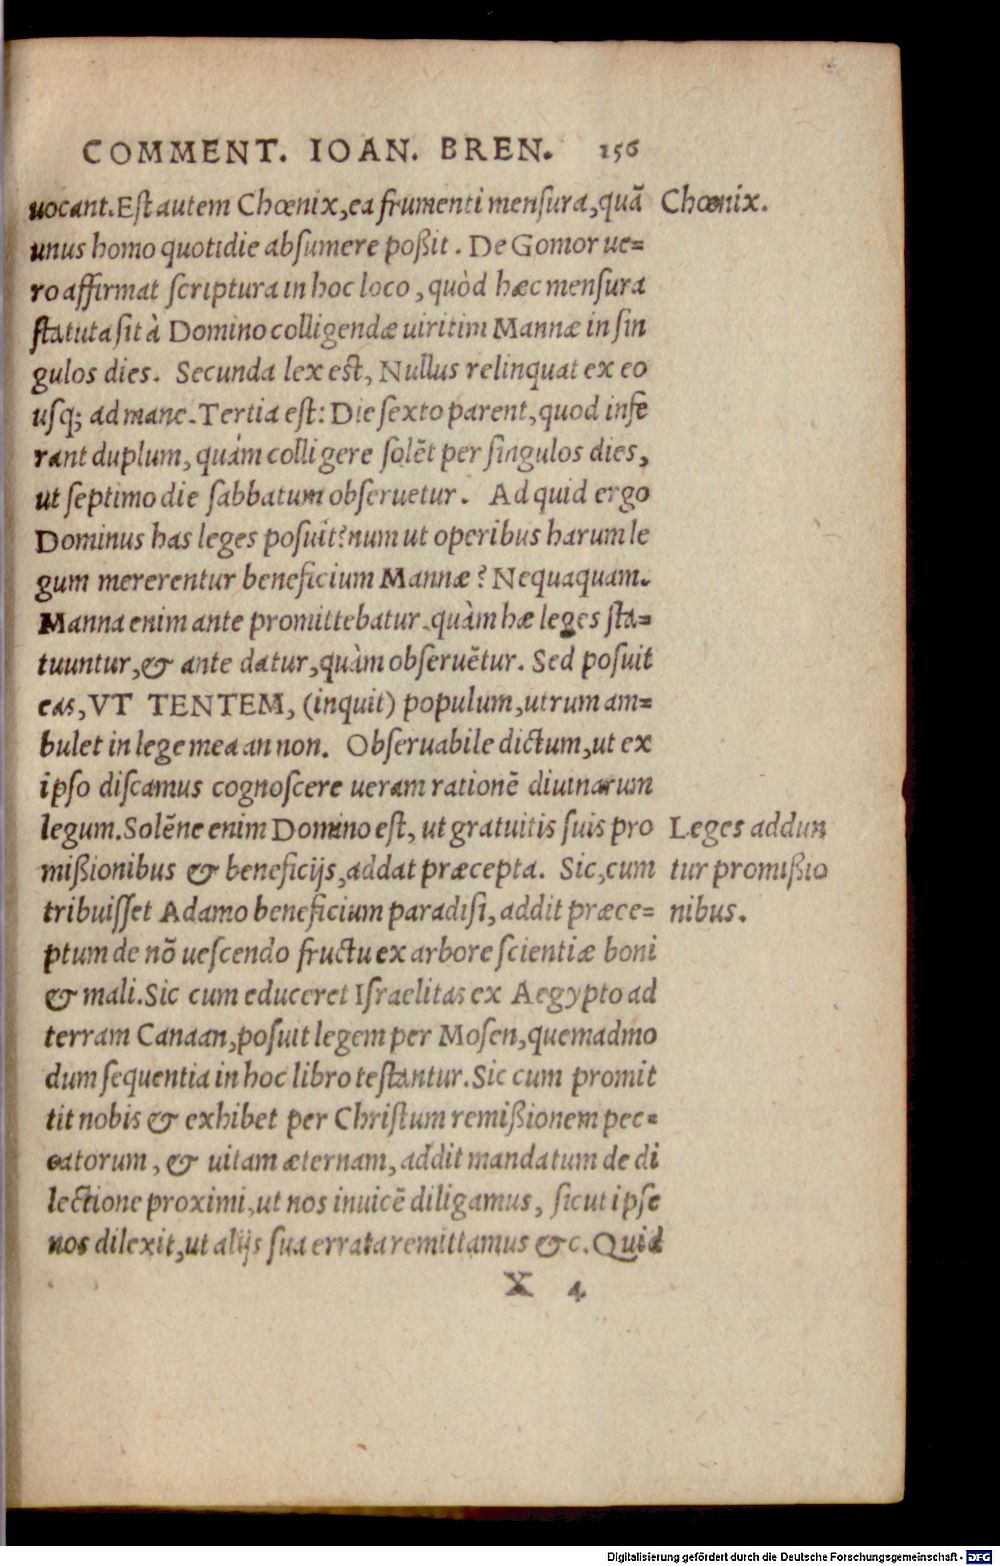 COMMENT. IOAN. BREN. 156
uocant. Est autem Chœnix, ea frumenti mensura, quā
Chœnix.
unus homo quotidie absumere poßit. De Gomor ue=
ro affirmat scriptura in hoc loco, quòd hæc mensura
statuta sit à Domino colligendæ uiritim Mannæ in sin
gulos dies. Secunda lex est, Nullus relinquat ex eo
usq; ad mane. Tertia est: Die sexto parent, quod infe
rant duplum, quám colligere solēt per singulos dies,
ut septimo die sabbatum obseruetur. Ad quid ergo
Dominus has leges posuit? num ut operibus harum le
gum mererentur beneficium Mannæ? Nequaquam.
Manna enim ante promittebatur, quàm hæ leges sta=
tuuntur, & ante datur, quàm obseruētur. Sed posuit
eas, VT TENTEM, (inquit) populum, utrum am=
bulet in lege mea an non. Obseruabile dictum, ut ex
ipso discamus cognoscere ueram rationē diuinarum
legum. Solēne enim Domino est, ut gratuitis suis pro
mißionibus & beneficijs, addat præcepta. Sic, cum
tribuisset Adamo beneficium paradisi, addit præce=
Leges addun
tur promißio
nibus.
ptum de nō uescendo fructu ex arbore scientiæ boni
& mali. Sic cum educeret Israelitas ex Aegypto ad
terram Canaan, posuit legem per Mosen, quemadmo
dum sequentia in hoc libro testantur. Sic cum promit
tit nobis & exhibet per Christum remißionem pec=
catorum, & uitam æternam, addit mandatum de di
lectione proximi, ut nos inuicē diligamus, sicut ipse
nos dilexit, ut alijs sua errata remittamus &c. Quid
X 4
Digitalisierung gefördert durch die Deutsche Forschungsgemeinschaft - DFG